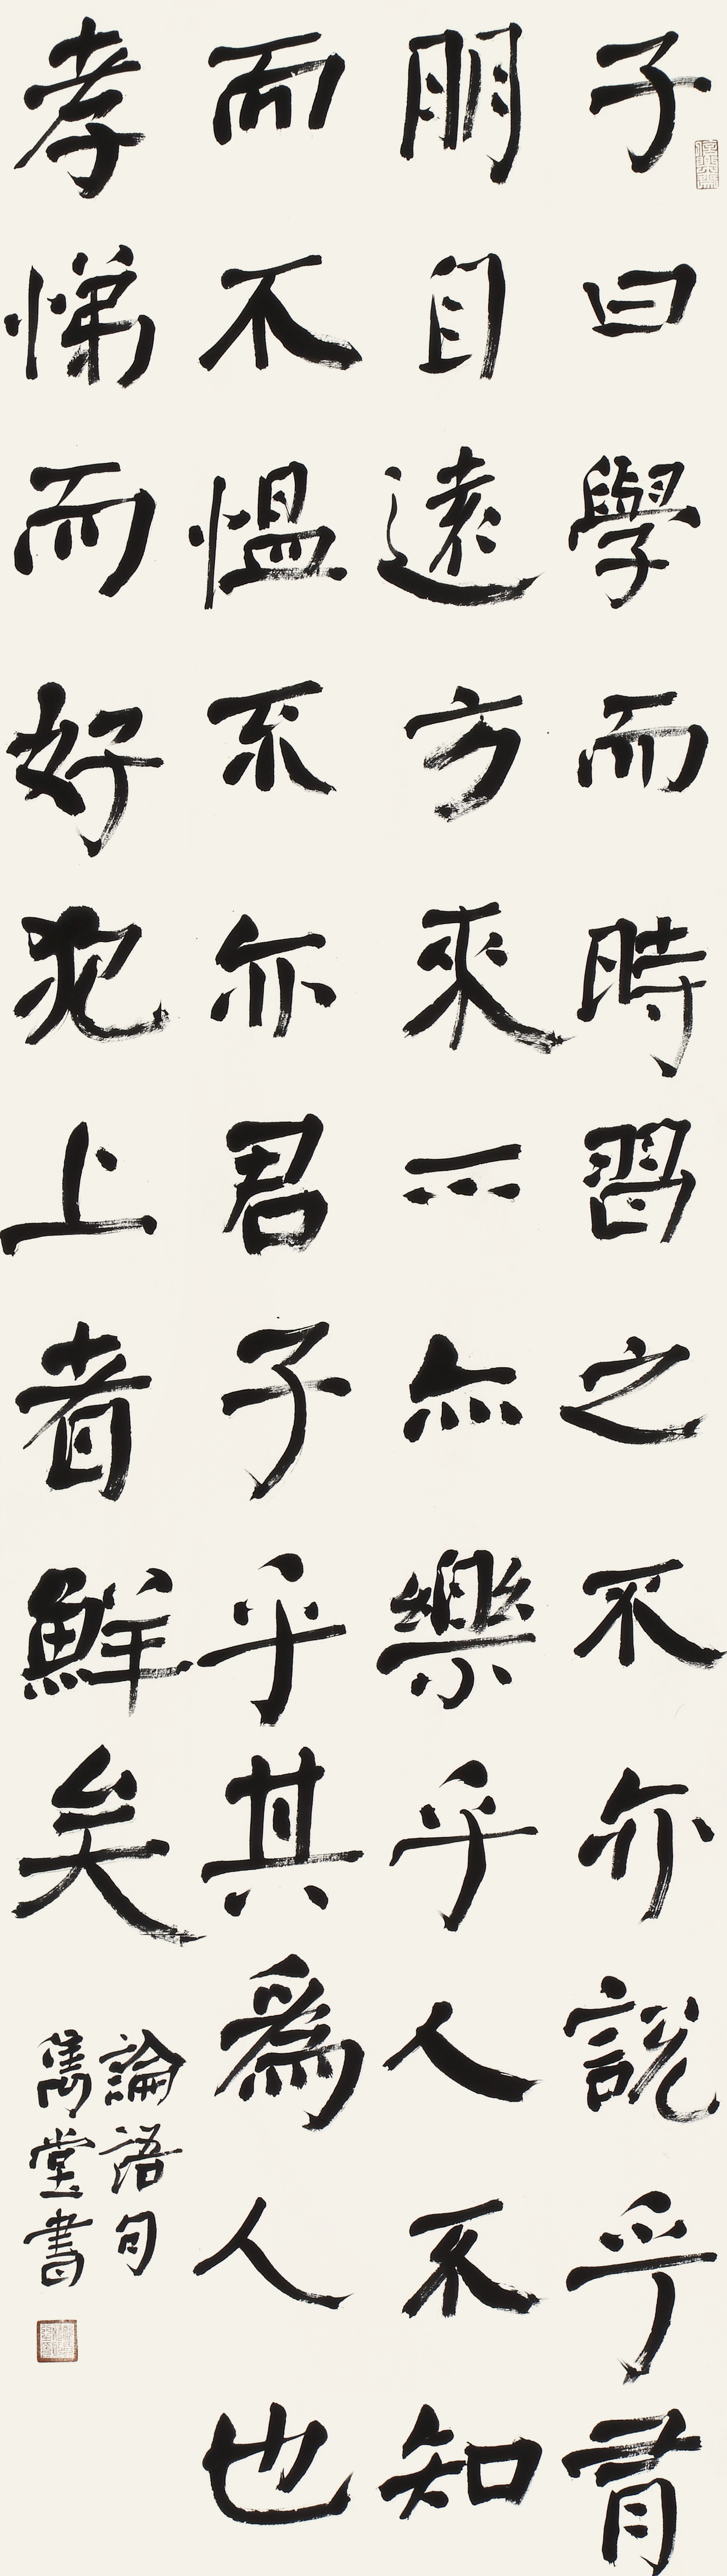 子曰學而時習之不亦說乎有
朋自遠方來不亦樂乎人不知
而不慍不亦君子乎其為人也
孝悌而好犯上者鮮矣
論語句
雋堂書